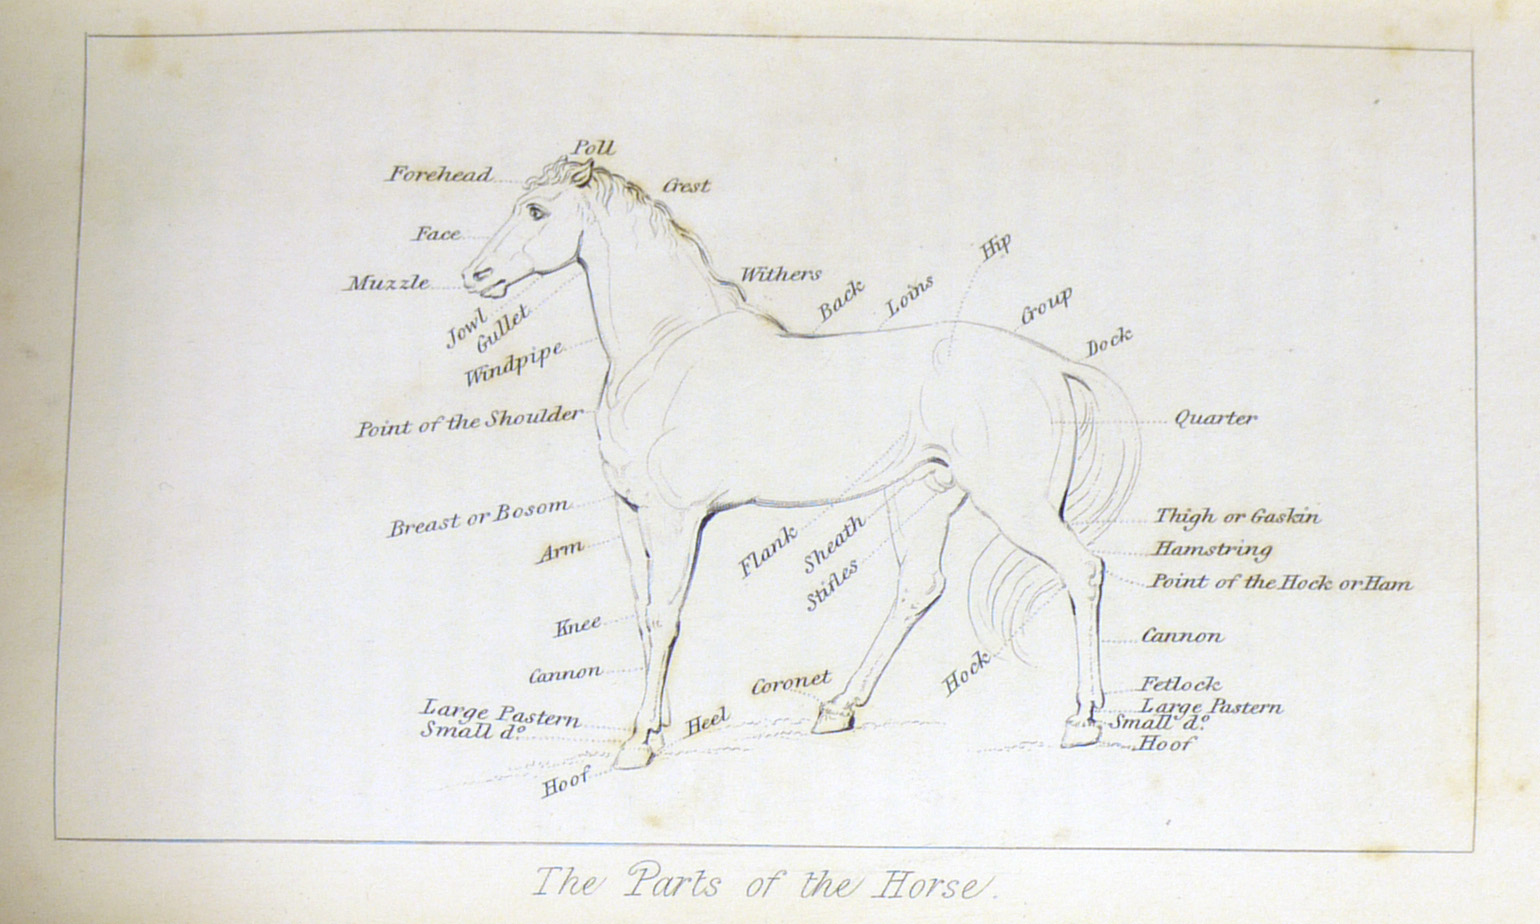 Poll
Forehead
Crest
Face
Muzzle
Withers
Back
Loins
Hip
Croup
Dock
Jowl
Gullet
Windpipe
Point of the Shoulder
Quarter
Breast or Bosom
Arm
Flank
Sheath
Stifles
Thigh or Gaskin
Hamstring
Point of the Hock or Ham
Knee
Cannon
Cannon
Coronet
Hock
Fetlock
Large Pastern
Small dº
Hoof
Large Pastern
Small dº
Heel
Hoof
The Parts of the Horse.